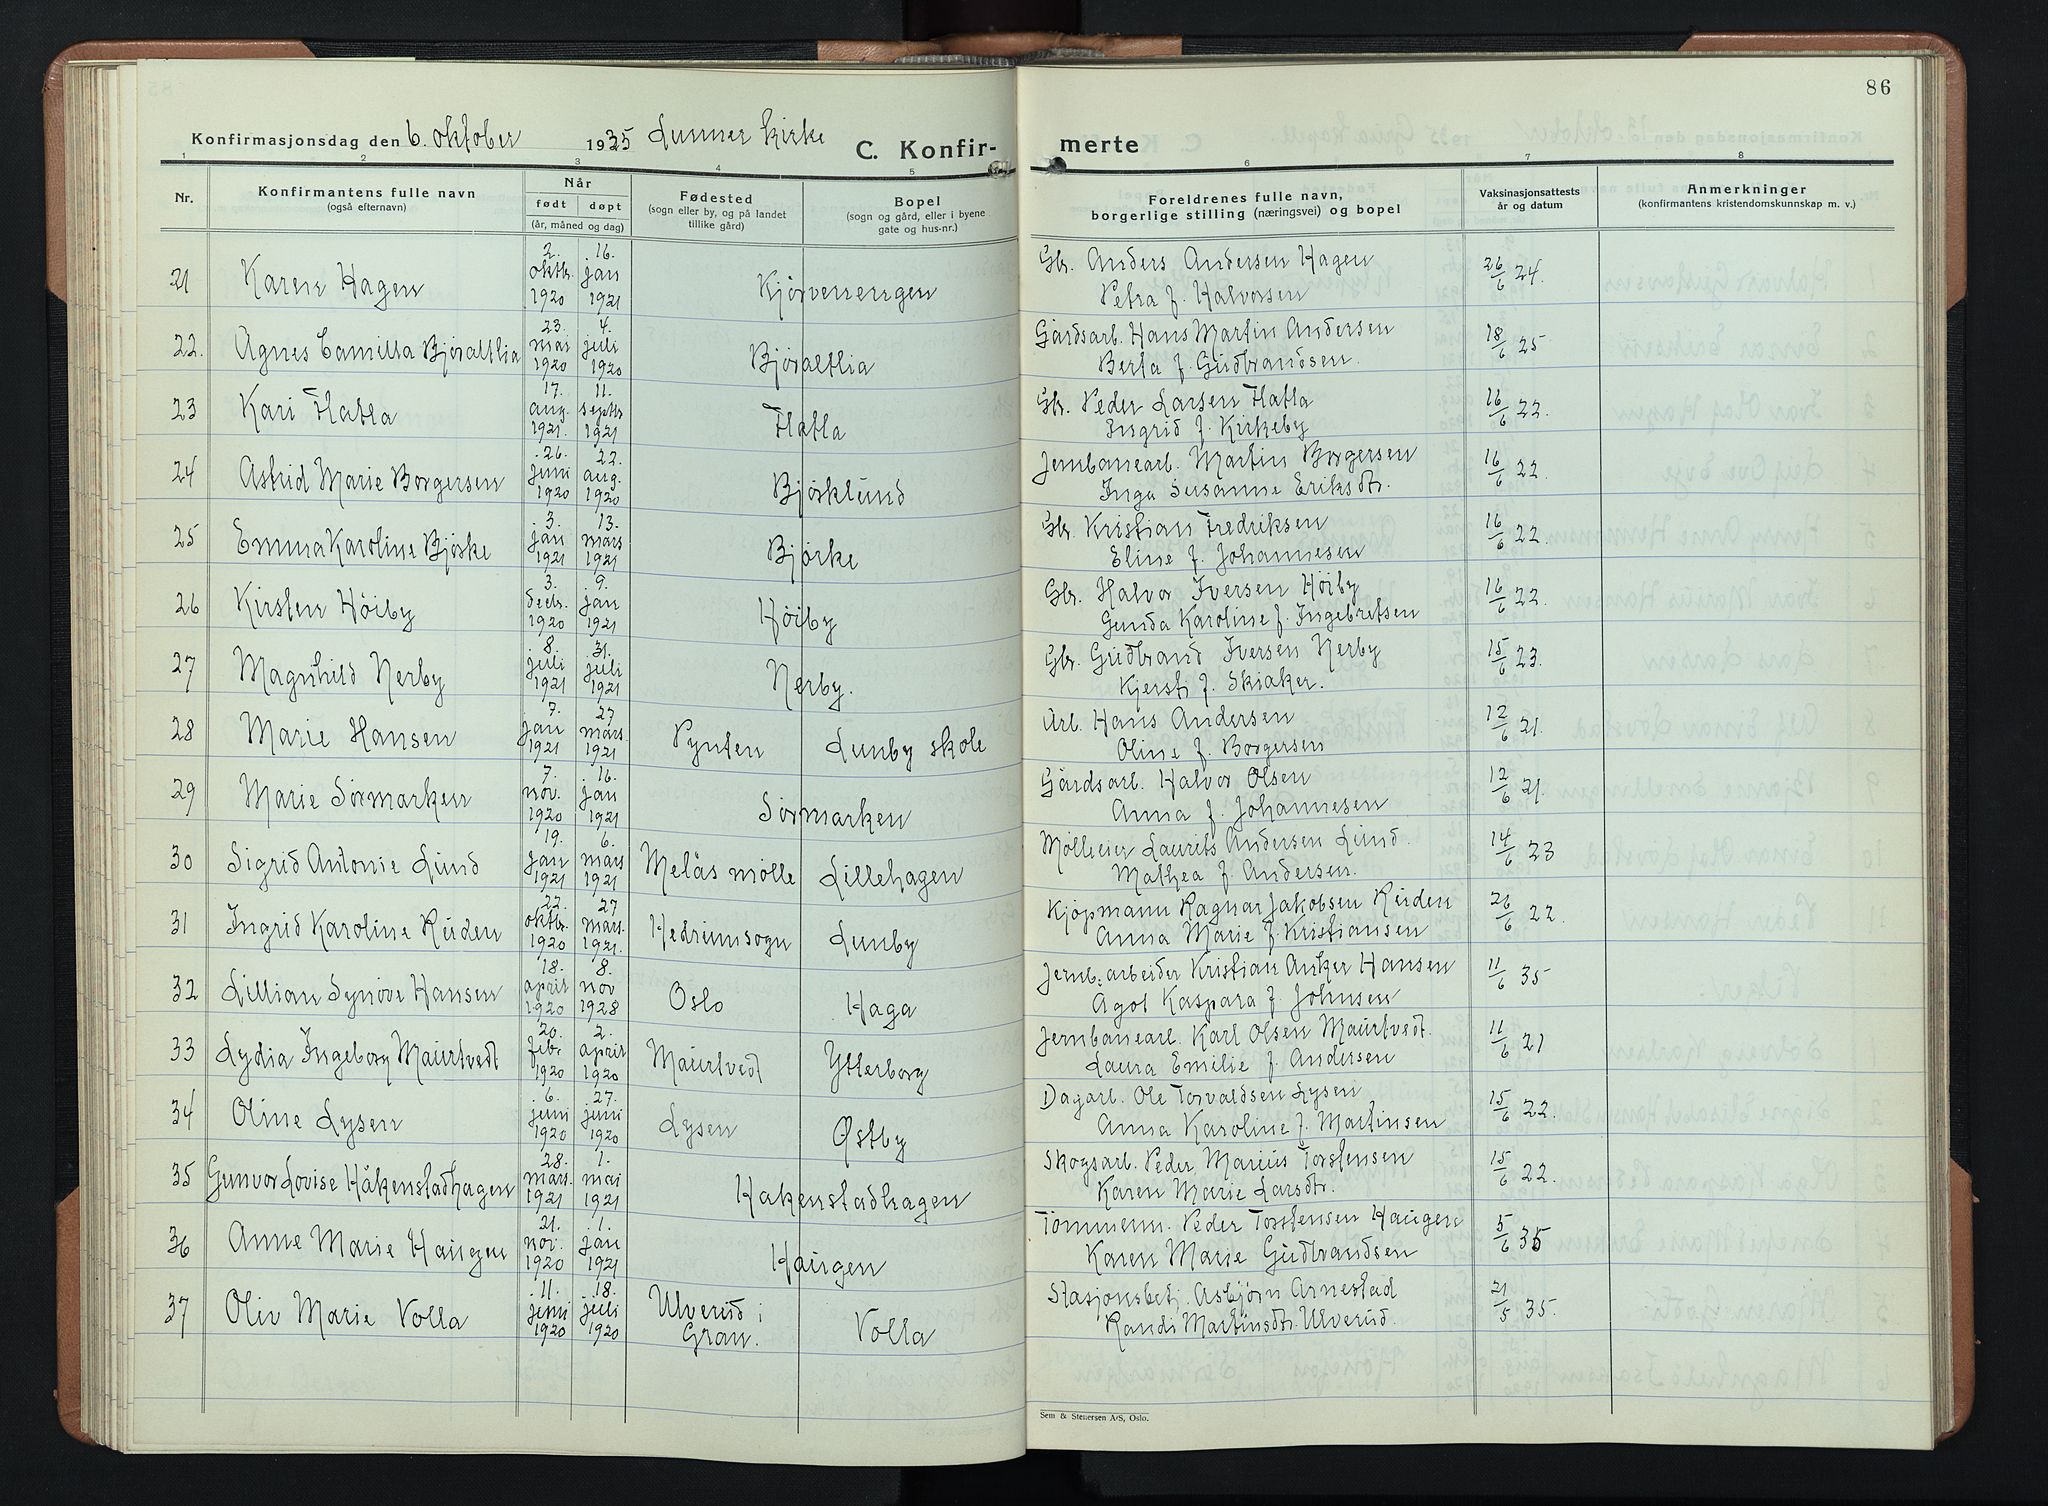 86
Konfirmasjonsdag den 6. oktober 1935 Lunner kirke
C. Konfir- merte
1 2 3 4 5 6 7 8
Nr. Konfirmantens fulle navn (også efternavn) Når født døpt (år, måned og dag) Fødested (sogn eller by, og på landet tillike gård) Bopel (sogn og gård, eller i byene gate og hus-nr.) Foreldrenes fulle navn, borgerlige stilling (næringsvei) og bopel Vaksinasjonsattests år og datum Anmerkninger (konfirmantens kristendomskunnskap m. v.)
21 Karen Hagen 2. oktbr. 1920 16. jan 1921 Kjørvenengen Gbr. Anders Andersen Hagen
Petra f. Halvorsen 26/6 24.
22. Agnes Camilla Bjøraltlia 23. mai 1920 4. juli 1920 Bjøraltlia Gårdsarb. Hans Martin Andersen
Berta f. Gudbrandsen. 18/6 25
23 Kari Flatla 17. aug. 1921. 11. septbr. 1921 Flatla Gbr. Peder Larsen Flatla
Ingrid f. Kirkeby 16/6 22.
24 Astrid Marie Borgersen 26. juni 1920 22. aug. 1920 Bjørklund Jernbanearb. Martin Borgersen
Inga Susanne Eriksdtr. 16/6 22.
25 Emma Karoline Bjørke 3. jan 1921 13. mars 1921 Bjørke Gbr. Kristian Fredriksen
Eline f. Johannesen 16/6 22.
26 Kirsten Höiby 3. decbr. 1920 9. jan 1921 Höiby Gbr. Halvor Iversen Höiby
Gunda Karoline f. Ingebretsen 16/6 22.
27 Magnhild Nerby 8. juli 1921 31. juli 1921 Nerby. Gbr. Gudbrand Iversen Nerby
Kjersti f. Skiaker. 15/6 23.
28 Marie Hansen 7. jan 1921 27 mars. 1921 Pynten Lunby skole Arb. Hans Andersen
Oline f. Borgersen 12/6 21.
29 Marie Sörmarken 7. nov. 1920 16. jan 1921 Sörmarken Gårdsarb. Halvor Olsen
Anna f. Johannesen 12/6 21.
30 Sigrid Antonie Lund 19. jan 1921 6. mars 1921 Melås mølle Lillehagen Mølleeier Laurits Andersen Lund.
Mathea f. Andersen. 14/6 23
31 Ingrid Karoline Ruden 22. oktbr. 1920 27 mars. 1921. Hedrumsogn Lunby Kjøpmann Ragnar Jakobsen Ruden
Anna Marie f. Kristiansen 26/6 22
32 Lillian Synöve Hansen 18. april 1920 8. nov 1928 Oslo Haga Jernb: arbeider Kristian Anker Hansen
Agot Kaspara f. Johnsen 11/6 35
33 Lydia Ingeborg Maurtvedt 20. feb. 1920 2. april 1920 Maurtvedt Ytterborg Jernbanearb. Karl Olsen Maurtvedt.
Laura Emilie f. Andersen 11/6 21
34 Oline Lysen 6. juni 1920 27. juni 1920 Lysen Østby Dagarb. Ole Torvaldsen Lysen
Anna Karoline f. Martinsen 15/6 22.
35 Gunvor Lovise Håkenstadhagen 28. mars. 1921 1. mai 1921 Hakenstadhagen Skogsarb. Peder Marius Torstensen
Karen Marie Larsdtr. 15/6 22.
36 Anne Marie Haugen 21. nov. 1920 1. jan 1921 Haugen Tömmerm. Peder Torstensen Haugen
Karen Marie Gudbrandsen 5/6 35
37 Oliv Marie Volla 11. juni 1920 18. juli 1920 Ulverud i Gran. Volla Stasjonsbetj. Asbjörn Arnestad
Randi Martinsdtr. Ulverud. 21/5 35.
Sem & Stenersen A/S, Oslo.